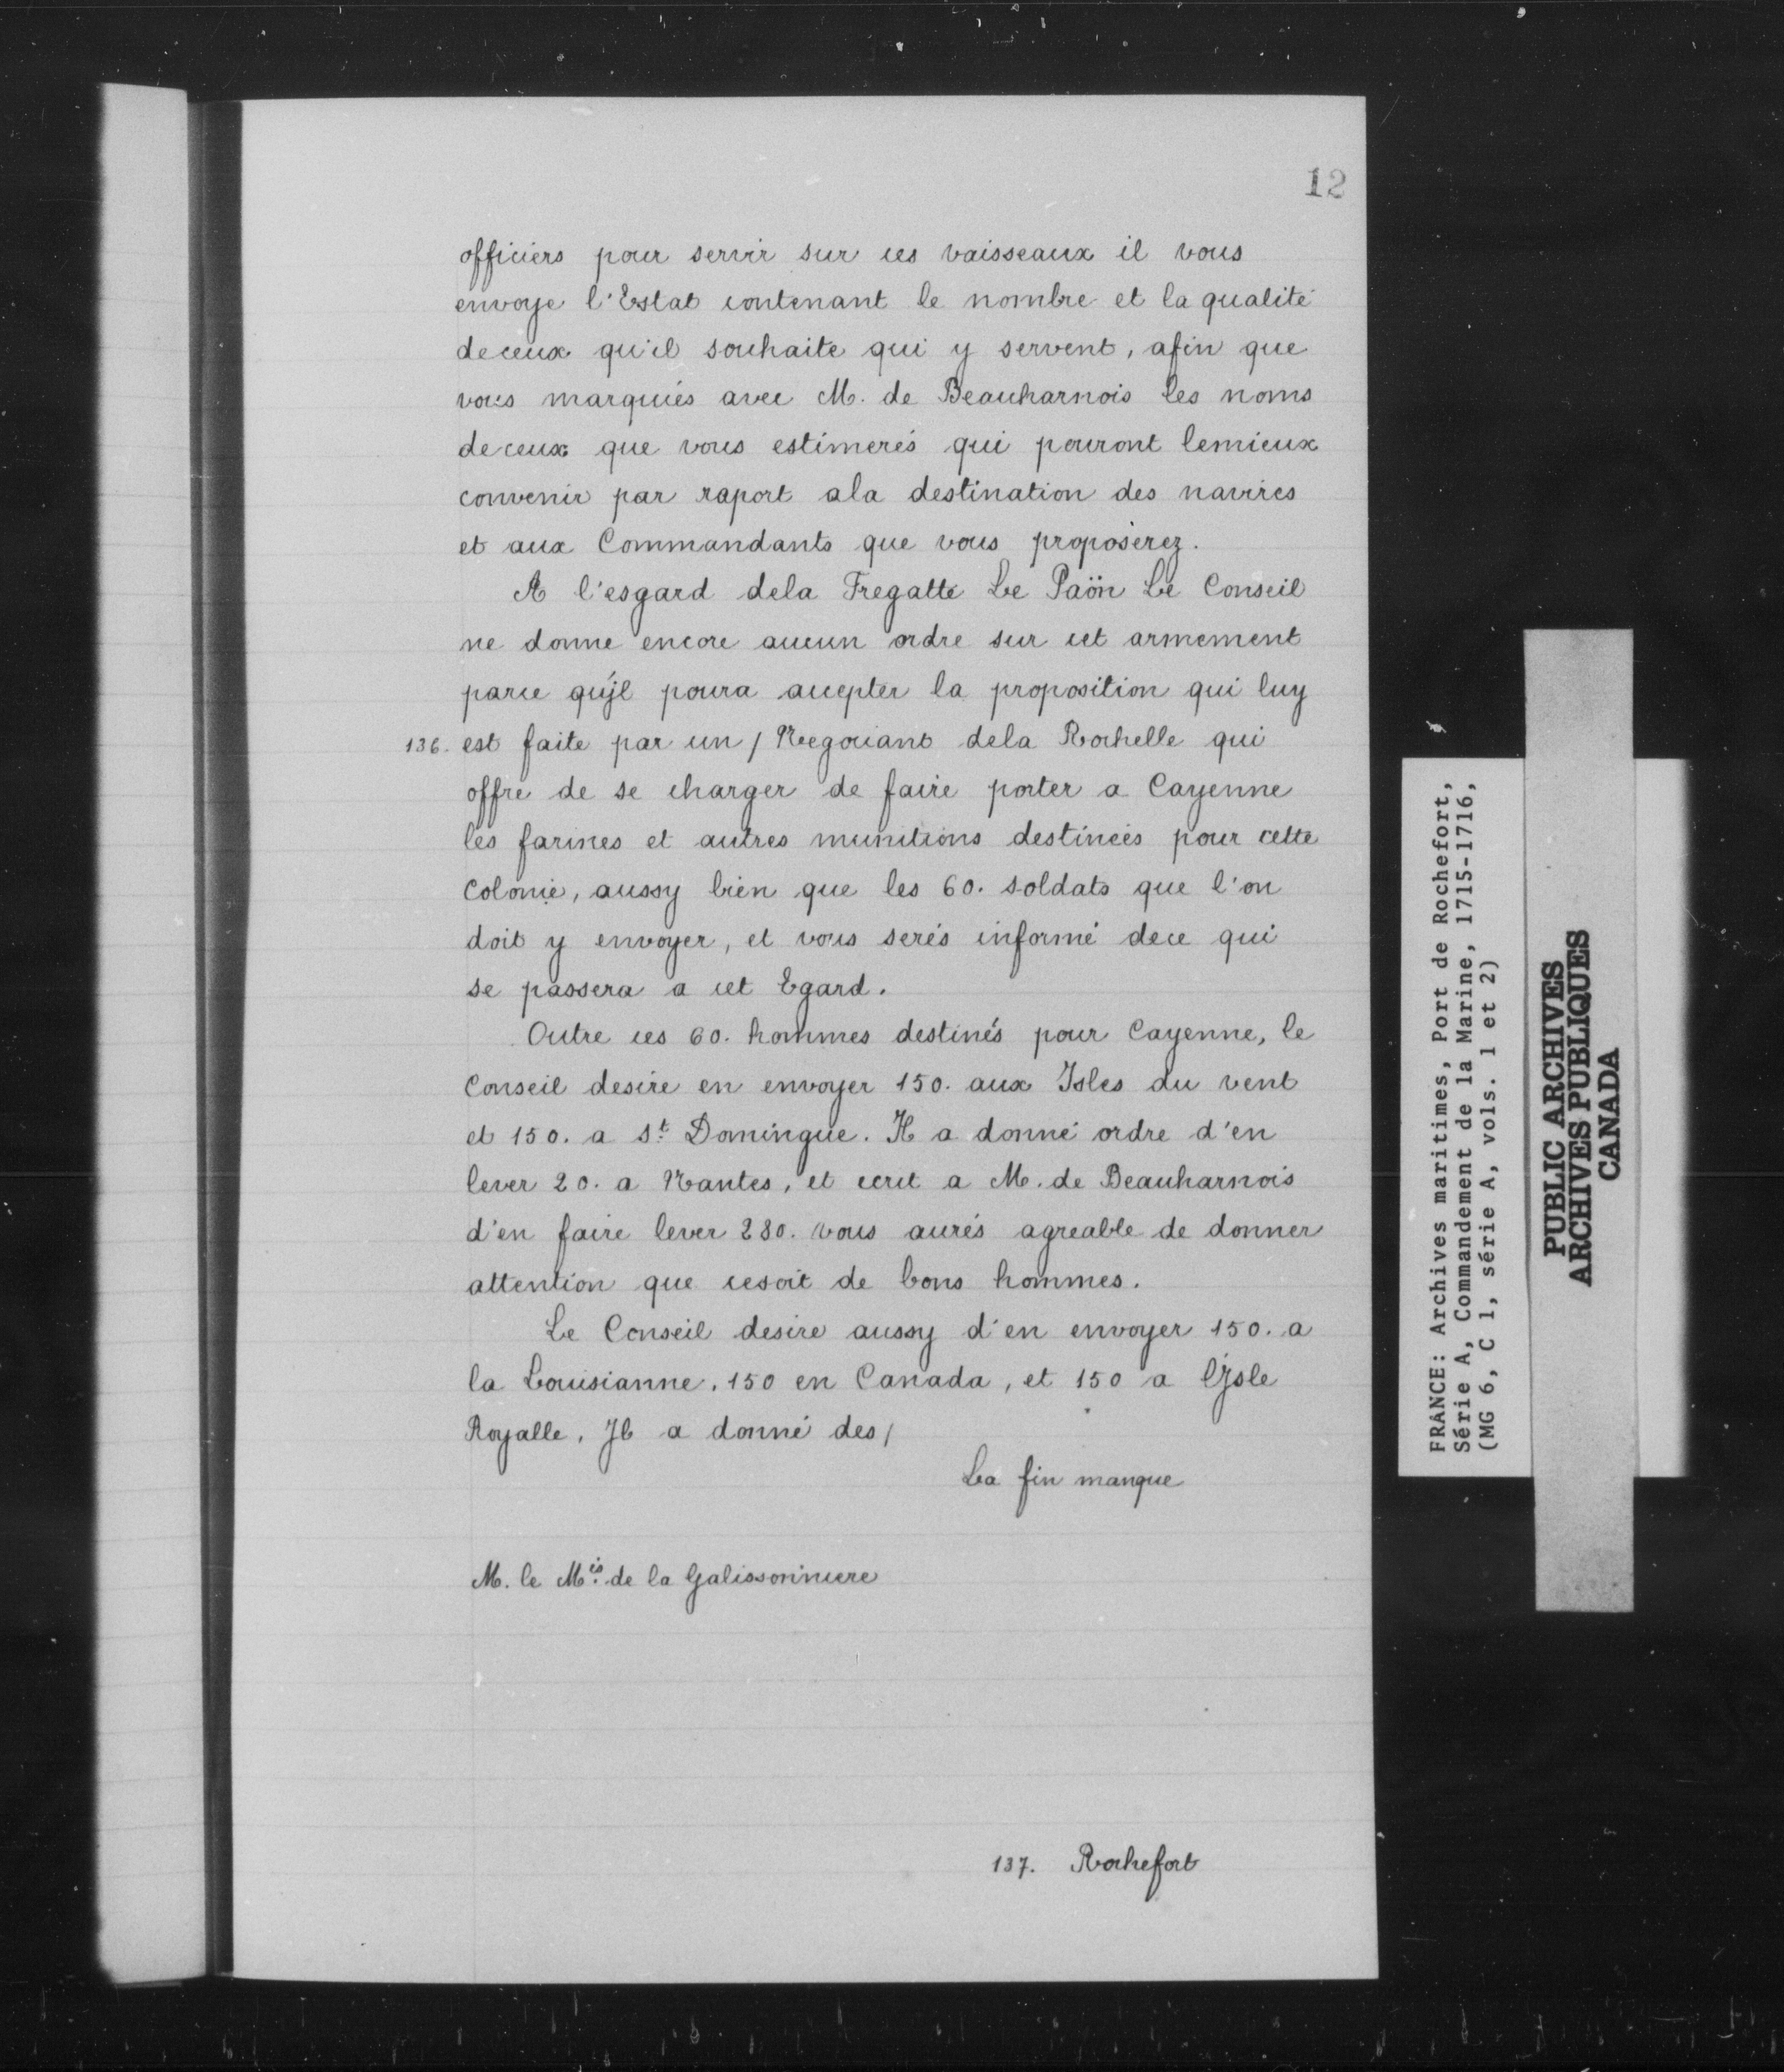 12
officiers pour servir sur ces vaisseaux il vous
envoye l'Estat contenant le nombre et la qualité
deceux qu'il souhaite qui y servent, afin que
vous marquiés avec M. de Beauharnois les noms
deceux que vous estimerés qui pouront lemieux
convenir par raport ala destination des navires
et aux Commandants que vous proposerez.
A l'esgard dela Fregatte Le Paön Le Conseil
ne donne encore aucun ordre sur cet armement
parce qu'jl poura accepter la proposition qui luy
136. est faite par un / Negociant dela Rochelle qui
offre de se charger de faire porter a Cayenne
les farines et autres munitions destinées pour cette
Colonie, aussy bien que les 60. soldats que l'on
doit y envoyer, et vous serés informé dece qui
se passera a cet Egard.
Outre ces 60. hommes destinés pour Cayenne, le
Conseil desire en envoyer 150. aux Isles du vent
et 150. a St. Domingue. Il a donné ordre d'en
lever 20. a Nantes, et ecrit a M. de Beauharnois
d'en faire lever 280. vous aurés agreable de donner
attention que cesoit de bons hommes.
Le Conseil desire aussy d'en envoyer 150. a
la Louisianne, 150 en Canada, et 150 a l'Jsle
Royalle, Jl a donné des /
La fin manque
M. le Mis. de la Galissonniere
137. Rochefort
FRANCE: Archives maritimes, Port de Rochefort,
Série A, Commandement de la Marine, 1715-1716,
(MG 6, C 1, série A, vols. 1 et 2)
PUBLIC ARCHIVES
ARCHIVES PUBLIQUES
CANADA